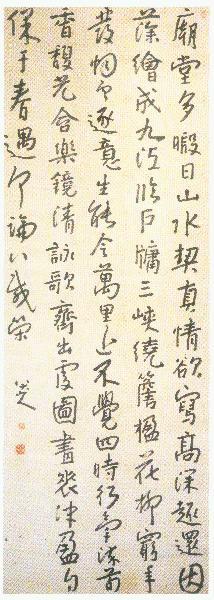 廟堂多暇日山水契真情欲寫高深趣還因
藻繪成九江臨戶牖三峽繞簷楹花柳窮年
發烟雲逐意生能令萬里近不覺四時行氣染荀
香馥光含樂鏡清詠歌齊出處圖畫表沖盈自
保千春遇何論八載榮
八大山人